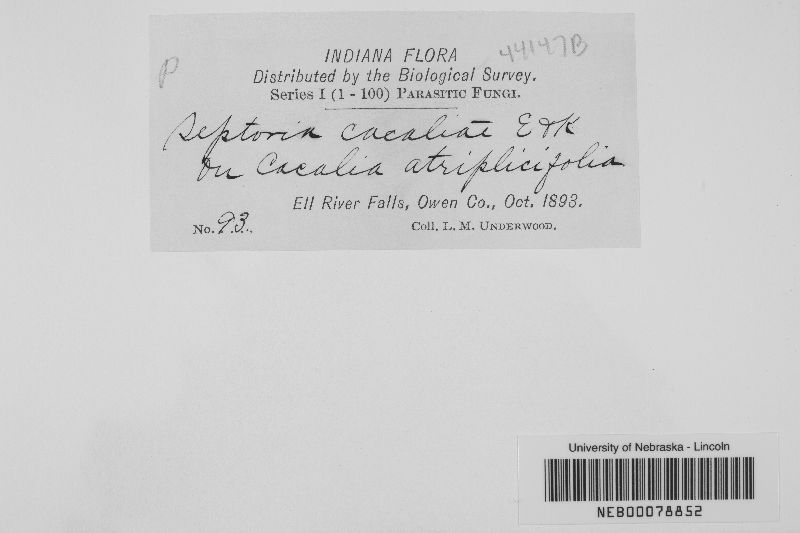 P
44147B
INDIANA FLORA
Distributed by the Biological Survey.
Series I (1 - 100) PARASITIC FUNGI.
Septoria cacaliae E & K
on Cacalia atriplicifolia
Ell River Falls, Owen Co., Oct. 1893.
No. 93.
Coll. L. M. UNDERWOOD.
University of Nebraska - Lincoln
NEB00078852